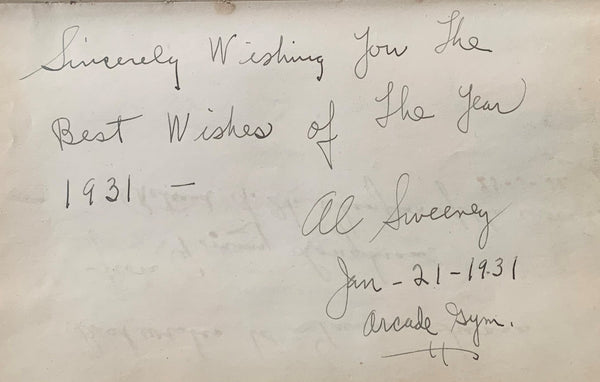 Sincerely Wishing You The
Best Wishes of The Year
1931 —
Al Sweeney
Jan - 21 - 1931
Arcade Gym.